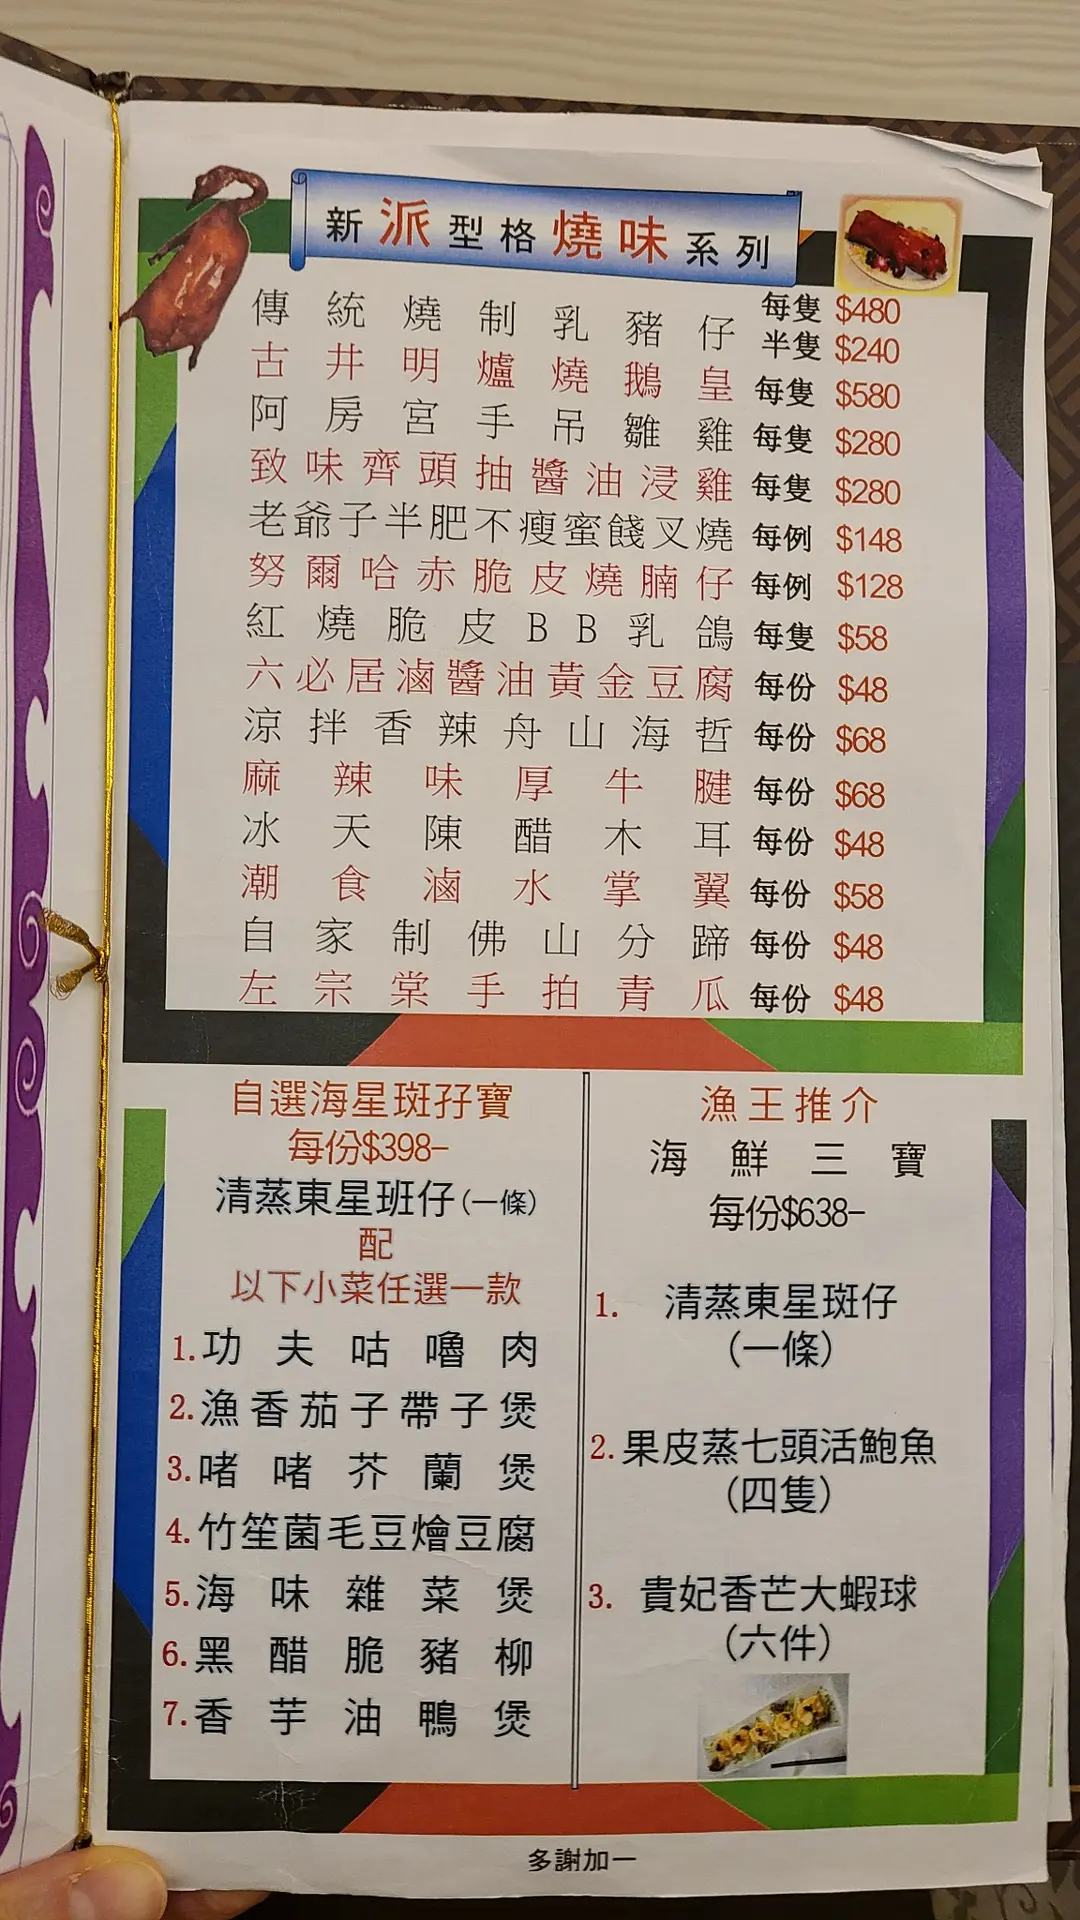 新派型格燒味系列
傳統燒制乳豬仔 每隻 $480
半隻 $240
古井明爐燒鵝皇 每隻 $580
阿房宮手吊雛雞 每隻 $280
致味齊頭抽醬油浸雞 每隻 $280
老爺子半肥不瘦蜜餞叉燒 每例 $148
努爾哈赤脆皮燒腩仔 每例 $128
紅燒脆皮BB乳鴿 每隻 $58
六必居滷醬油黃金豆腐 每份 $48
涼拌香辣舟山海哲 每份 $68
麻辣味厚牛腱 每份 $68
冰天陳醋木耳 每份 $48
潮食滷水掌翼 每份 $58
自家制佛山分蹄 每份 $48
左宗棠手拍青瓜 每份 $48
自選海星斑孖寶
每份$398-
清蒸東星班仔(一條)
配
以下小菜任選一款
1.功夫咕嚕肉
2.漁香茄子帶子煲
3.啫啫芥蘭煲
4.竹笙菌毛豆燴豆腐
5.海味雜菜煲
6.黑醋脆豬柳
7.香芋油鴨煲
漁王推介
海鮮三寶
每份$638-
1. 清蒸東星斑仔
(一條)
2.果皮蒸七頭活鮑魚
(四隻)
3. 貴妃香芒大蝦球
(六件)
多謝加一